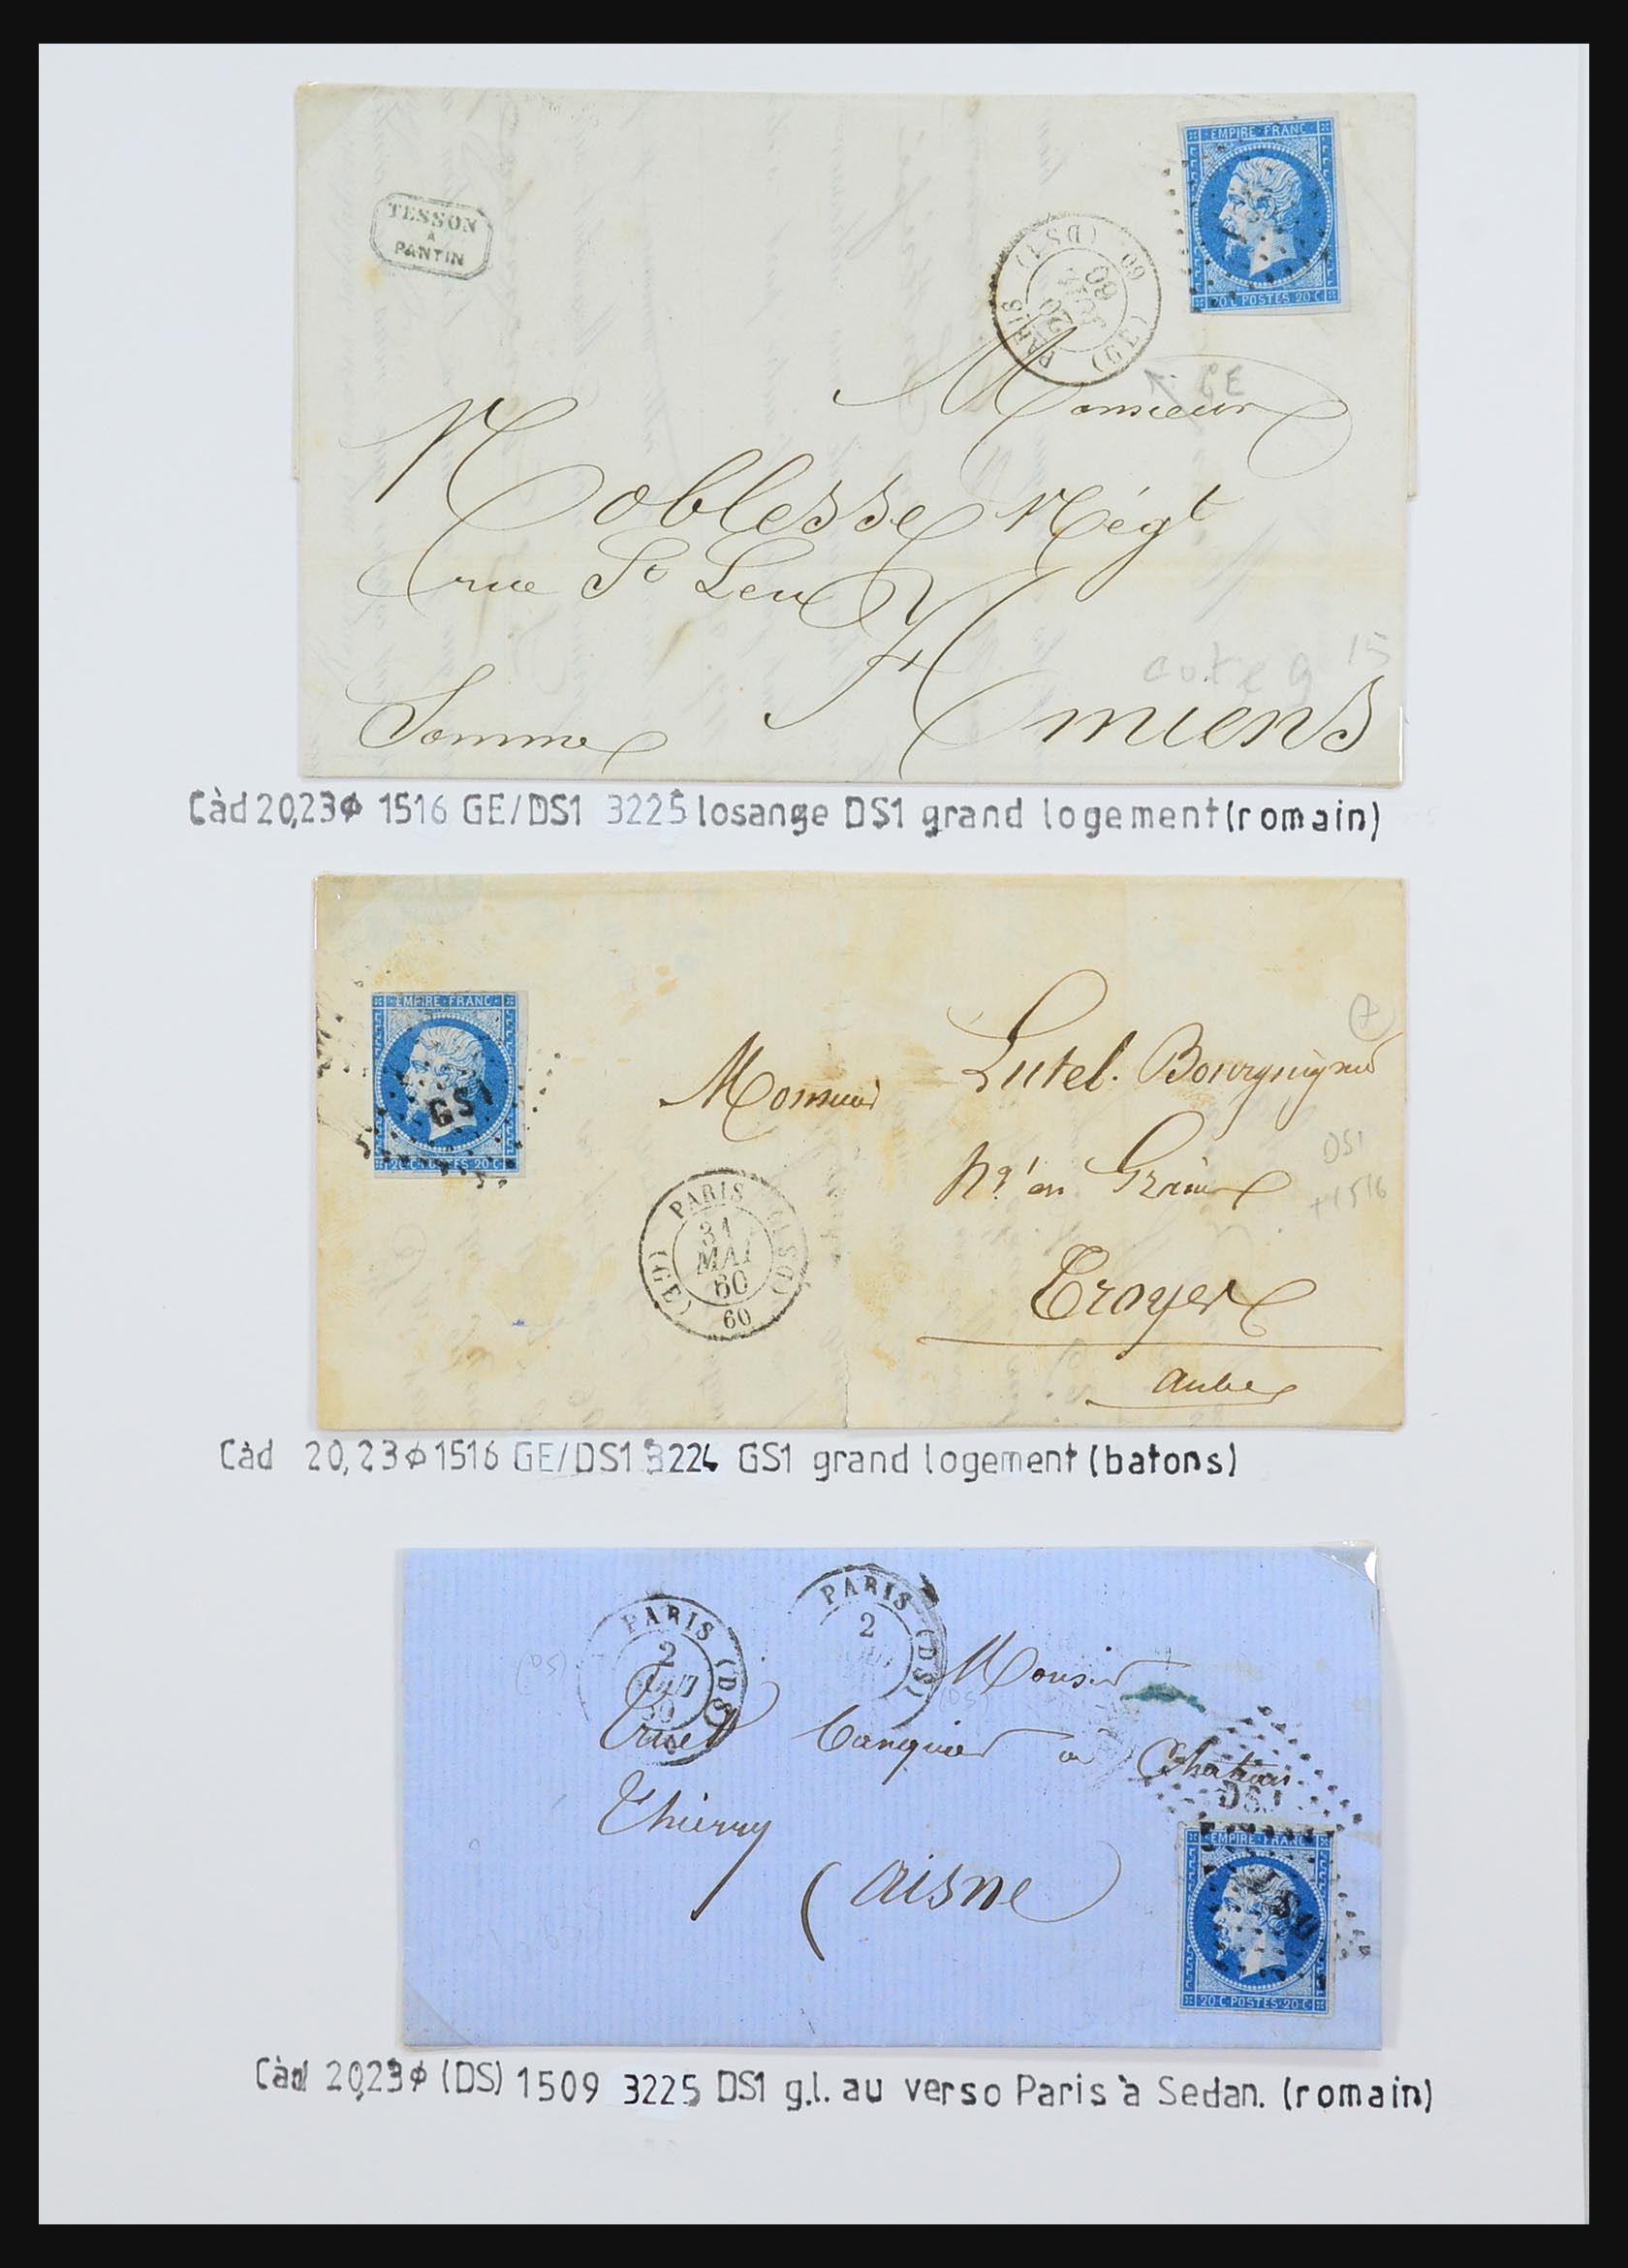 EMPIRE FRANC
20 C POSTES 20 C
TESSON
A
PANTIN
PARIS (DS1)
20
60
60 (GE)
GE
Monsieur
Noblesse Négt
rue St Leu
cote 9 15
Amiens
Somme
Càd 20,23ϕ 1516 GE/DS1 3225 losange DS1 grand logement (romain)
EMPIRE FRANC
GS1
20 C POSTES 20 C
Monsieur
DS1
+1516
PARIS (DS1)
31
MAI
60
60
(GE)
Troyes
Aube
Càd 20,23ϕ 1516 GE/DS1 3224 GS1 grand logement (batons)
PARIS (DS)
2
PARIS (DS)
2
Monsieur
banquier a Chateau
DS1
Thierry
EMPIRE FRANC
DS1
(Aisne
20 C POSTES 20 C
Càd 20,23ϕ (DS) 1509 3225 DS1 g.l. au verso Paris à Sedan. (romain)